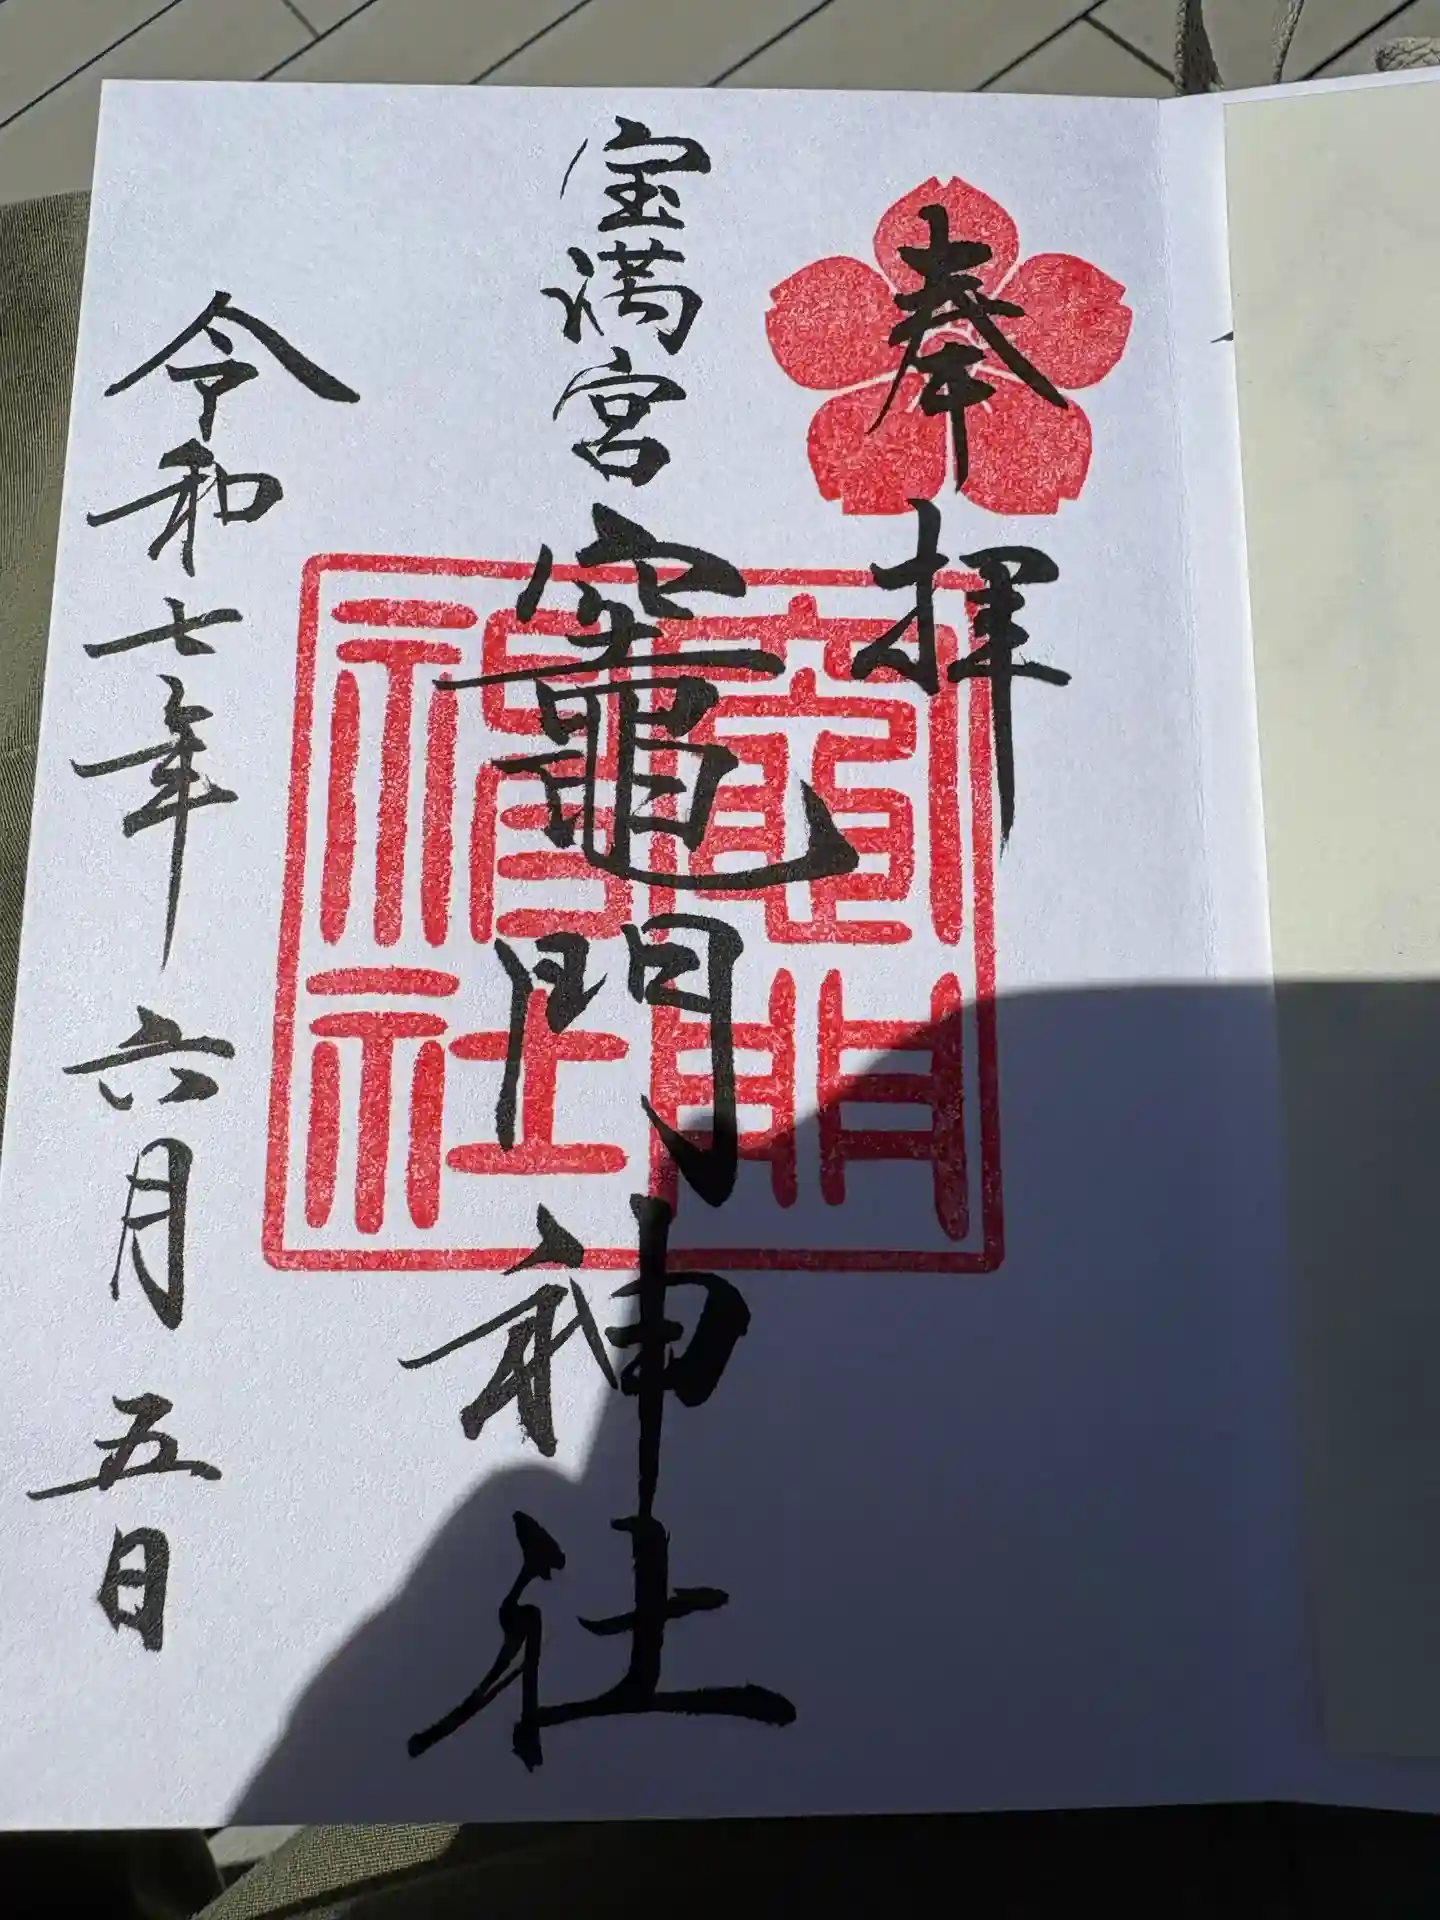 奉拝
宝満宮
竈門神社
竈門神社
令和七年六月五日